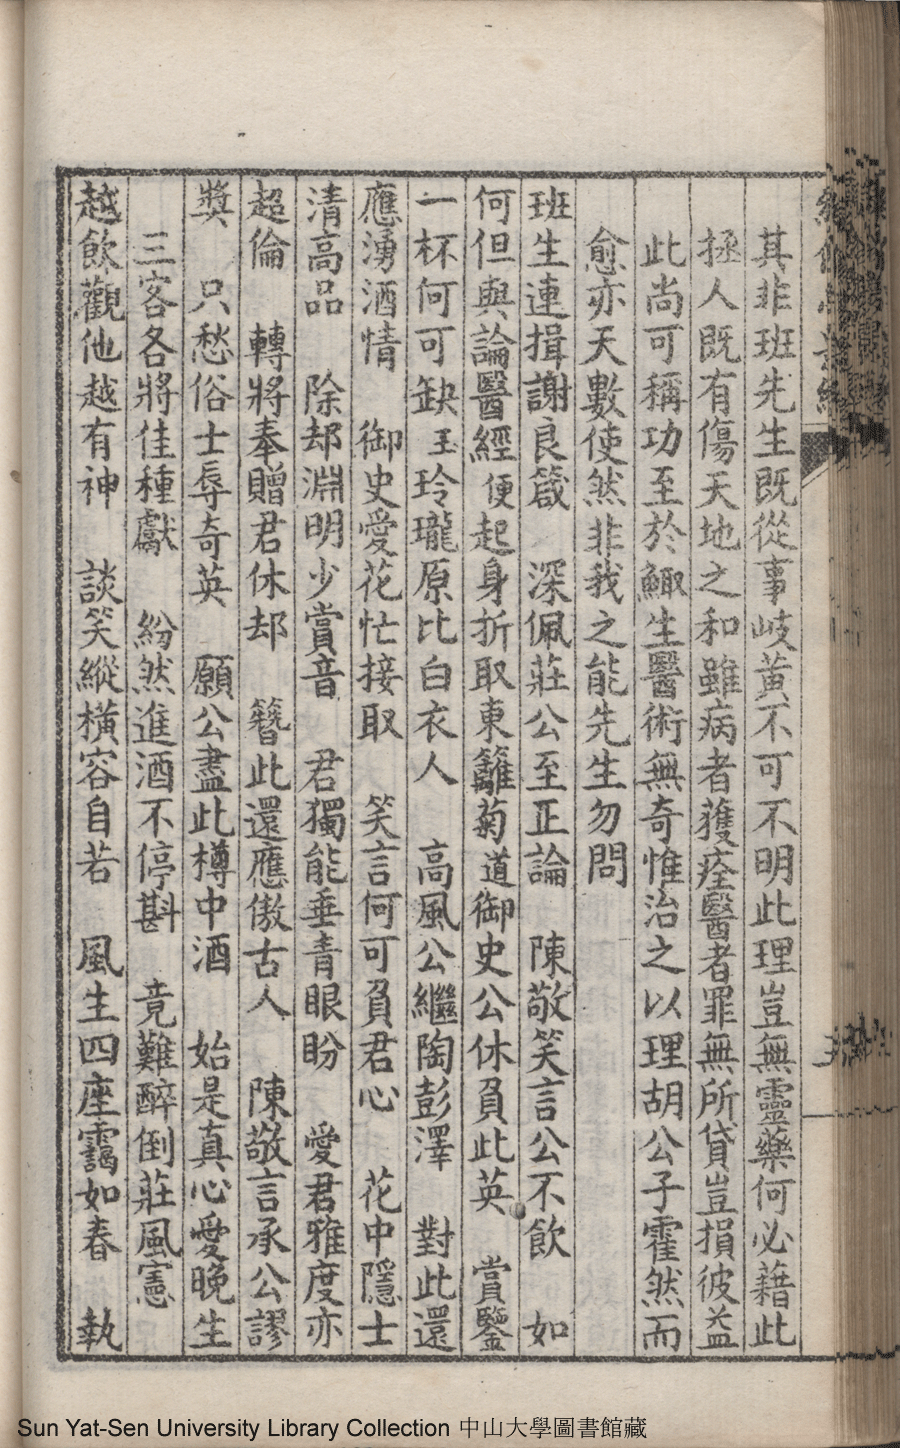 其非班先生既從事岐黃不可不明此理豈無靈藥何必藉此
拯人既有傷天地之和雖病者獲痊醫者罪無所貸豈損彼益
此尚可稱功至於鯫生醫術無奇惟治之以理胡公子霍然而
愈亦天數使然非我之能先生勿問
班生連揖謝良箴　深佩莊公至正論　陳敬笑言公不飲　如
何但與論醫經便起身折取東籬菊道御史公休負此英　賞鑒
一杯何可缺玉玲瓏原比白衣人　高風公繼陶彭澤　對此還
應湧酒情　御史愛花忙接取　笑言何可負君心　花中隱士
清高品　除却淵明少賞音　君獨能垂青眼盼　愛君雅度亦
超倫　轉將奉贈君休却　簪此還應傲古人　陳敬言承公謬
獎　只愁俗士辱奇英　願公盡此樽中酒　始是真心愛晚生
三客各將佳種獻　紛然進酒不停斟　竟難醉倒莊風憲
越飲觀他越有神　談笑縱橫容自若　風生四座靄如春　執
Sun Yat-Sen University Library Collection 中山大學圖書館藏